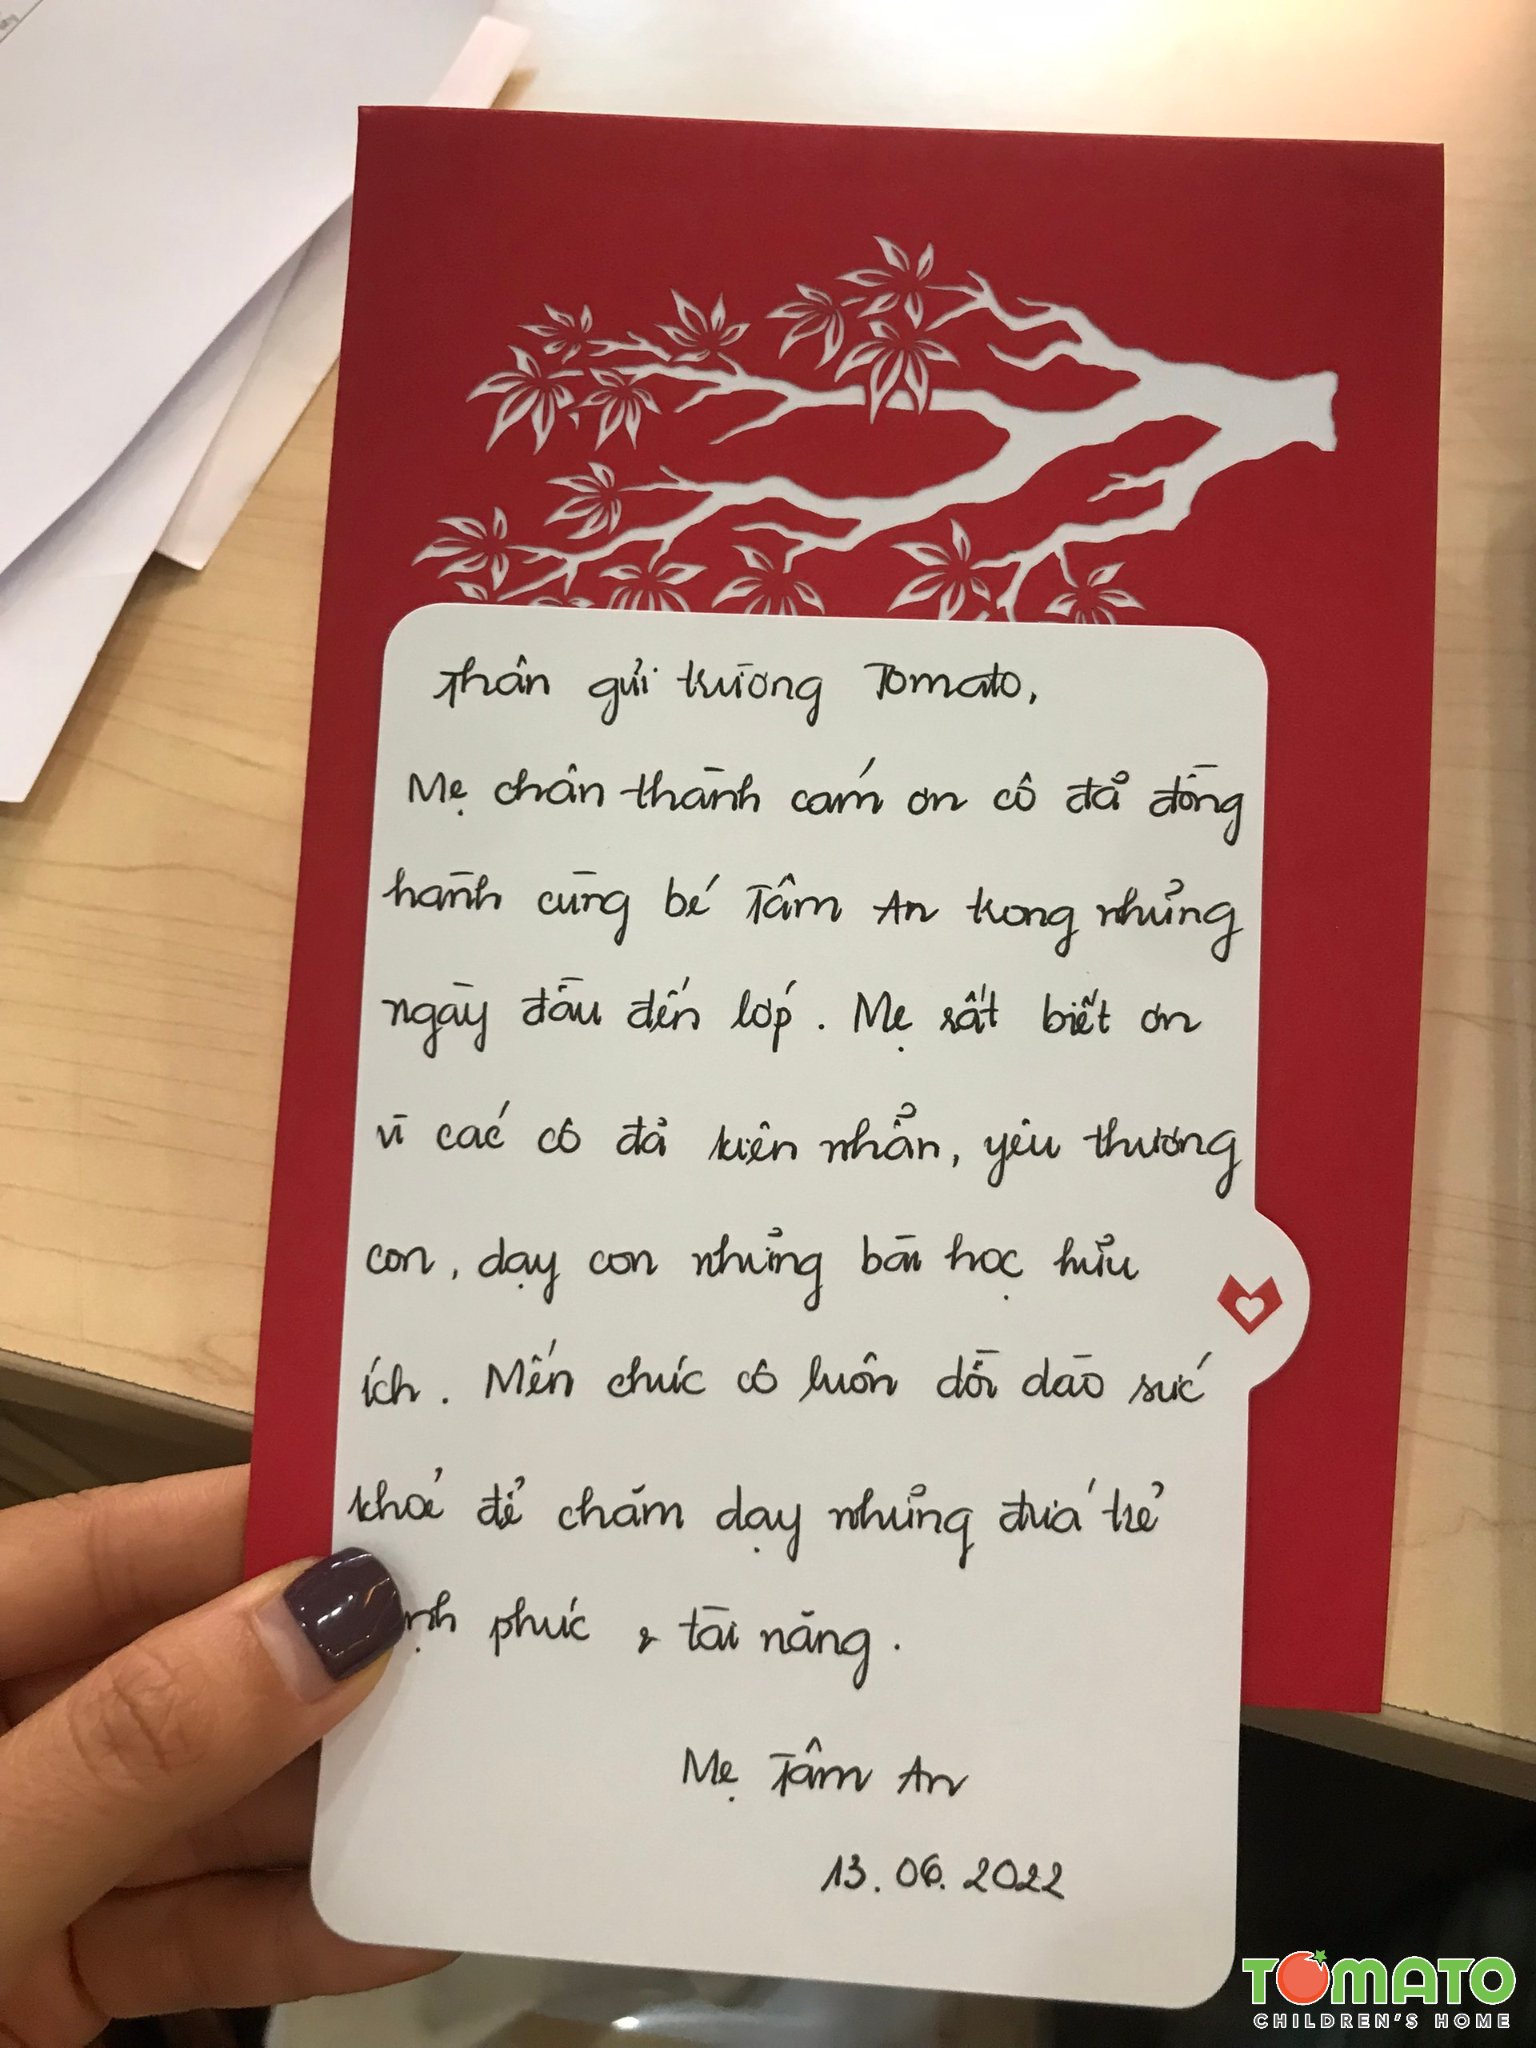 Thân gửi trường Tomato,
Mẹ chân thành cám ơn cô đã đồng
hành cùng bé Tâm An trong những
ngày đầu đến lớp. Mẹ rất biết ơn
vì các cô đã kiên nhẫn, yêu thương
con, dạy con những bài học hữu
ích. Mến chúc cô luôn dồi dào sức
khoẻ để chăm dạy những đứa trẻ
phúc & tài năng.
Mẹ Tâm An
13.06.2022
TOMATO
CHILDREN'S HOME